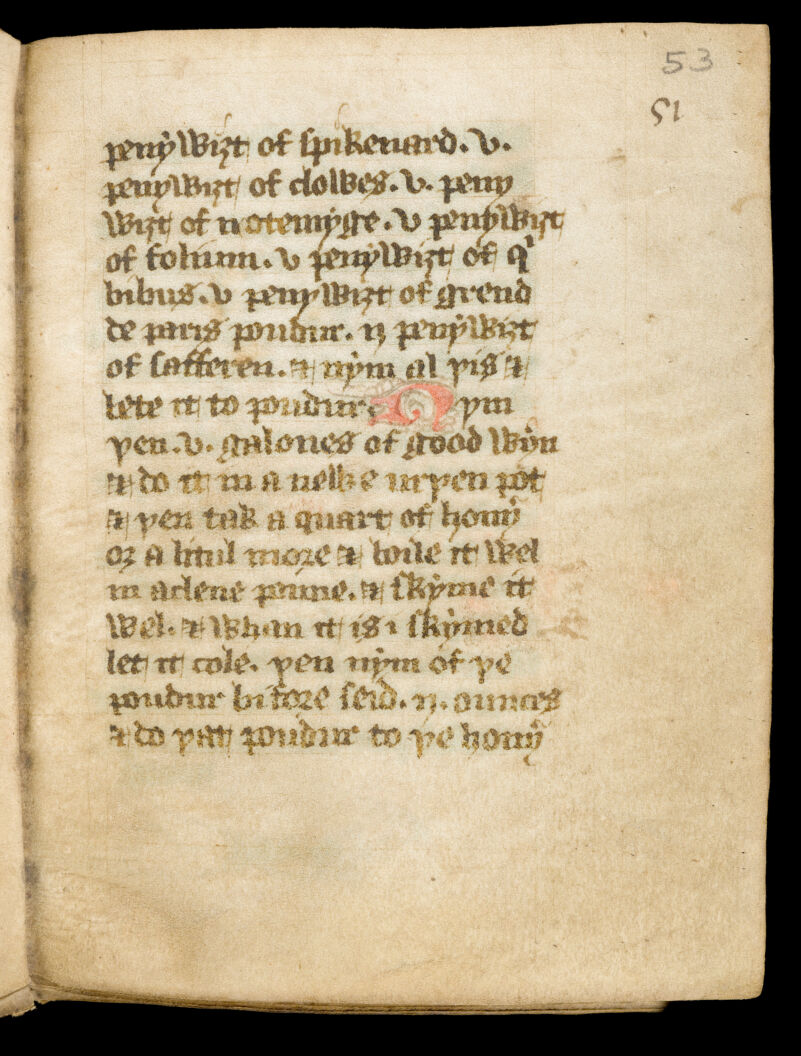 53
51
penywiȝt of spikenard. v.
penywiȝt of clowes. v. peny
wiȝt of notemyge. v penywiȝt
of folium. v penywiȝt of q
bibus. v penywiȝt of greyn
de paris poudur. ij penywiȝt
of safferen. & nym al þis &
lete it to poudure Nym
þen .v. galones of good wyn
& do it in a newe erþen pot
& þen tak a quart of hony
or a litul more & boile it wel
in a clene panne. & skyme it
wel. & whan it is i skymed
let it cole. þen nym of þe
poudur bifore seid. ij. ounces
& do þat poudur to þe hony